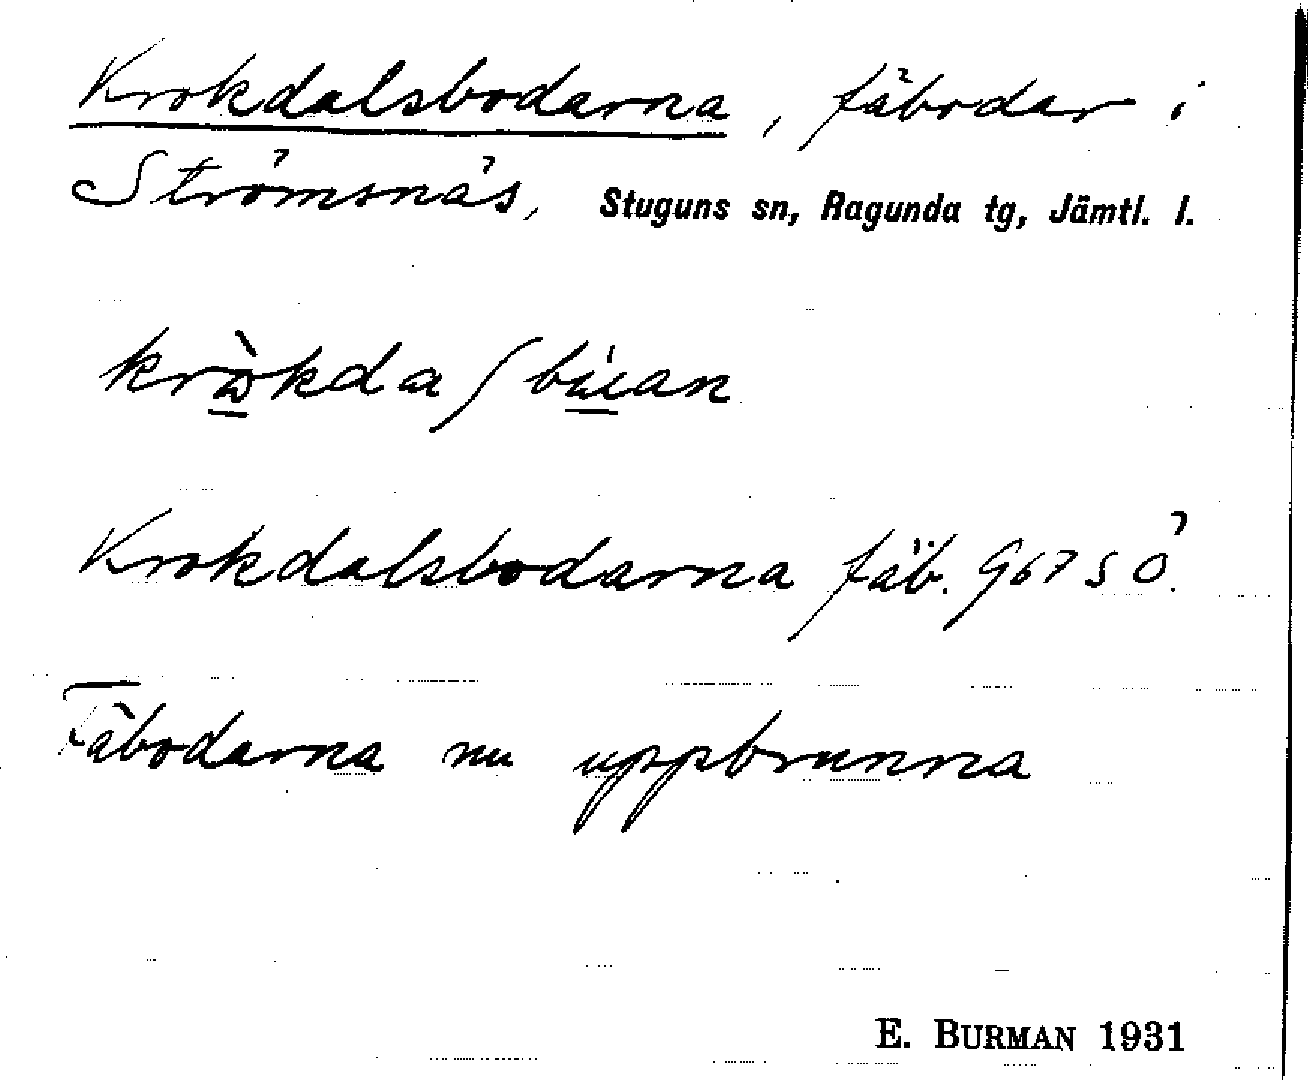 Krokdalsbodarna, fäbodar i
Strömsnäs, Stuguns sn, Ragunda tg, Jämtl. l.
krɷ̀kdaʃbúan
Krokdalsbodarna fäb. G67SÖ.
Fäbodarna nu uppbrunna
E. BURMAN 1931